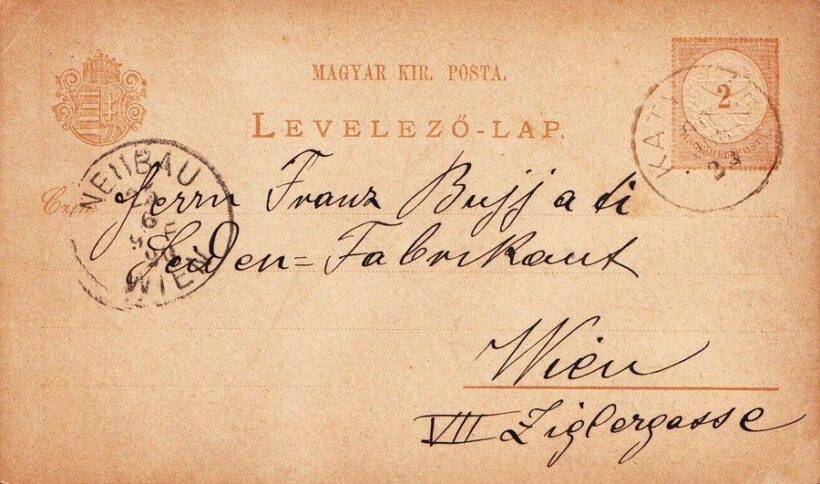 MAGYAR KIR. POSTA.
LEVELEZŐ-LAP.
2
NEUBAU
WIEN
Herrn Franz Bujjadi
Seiden=Fabrikant
Wien
VII Ziglergasse